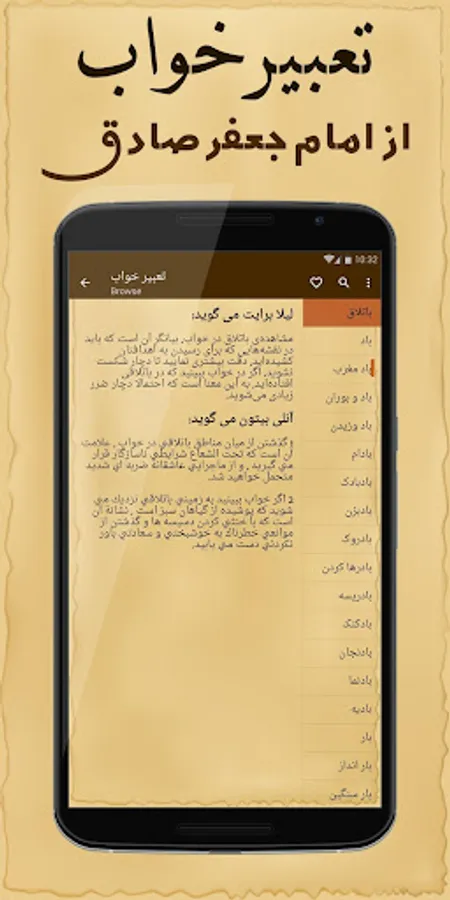 تعبیر خواب
از امام جعفر صادق
10:32
تعبیر خواب
Browse
لیلا برایت می گوید:
مشاهده‌ی باتلاق در خواب، بیانگر آن است که باید
در نقشه‌هایی که برای رسیدن به اهدافتان
کشیده‌اید، دقت بیشتری نمایید تا دچار شکست
نشوید. اگر در خواب ببینید که در باتلاقی
افتاده‌اید، به این معنا است که احتمالا دچار ضرر
زیادی می‌شوید.
آنلی بیتون می گوید:
۱ گذشتن از میان مناطق باتلاقي در خواب ، علامت
آن است که تحت الشعاع شرايطي ناسازگار قرار
مي گيريد ، و از ماجرايي عاشقانه ضربه اي شديد
متحمل خواهيد شد.
2 اگر خواب ببينيد به زميني باتلاقي نزديك مي
شويد كه پوشيده از گياهان سبز است ، نشانة آن
است كه با خنثي كردن دسيسه ها و گذشتن از
موانعي خطرناك به خوشبختي و سعادتي باور
نكردني دست مي يابيد.
باتلاق
باد
باد مغرب
باد و بوران
باد وزیدن
بادام
بادبادک
بادبزن
بادروک
بادرها کردن
بادریسه
بادکنک
بادنجان
بادنما
بادیه
بار
بار انداز
بار سنگین